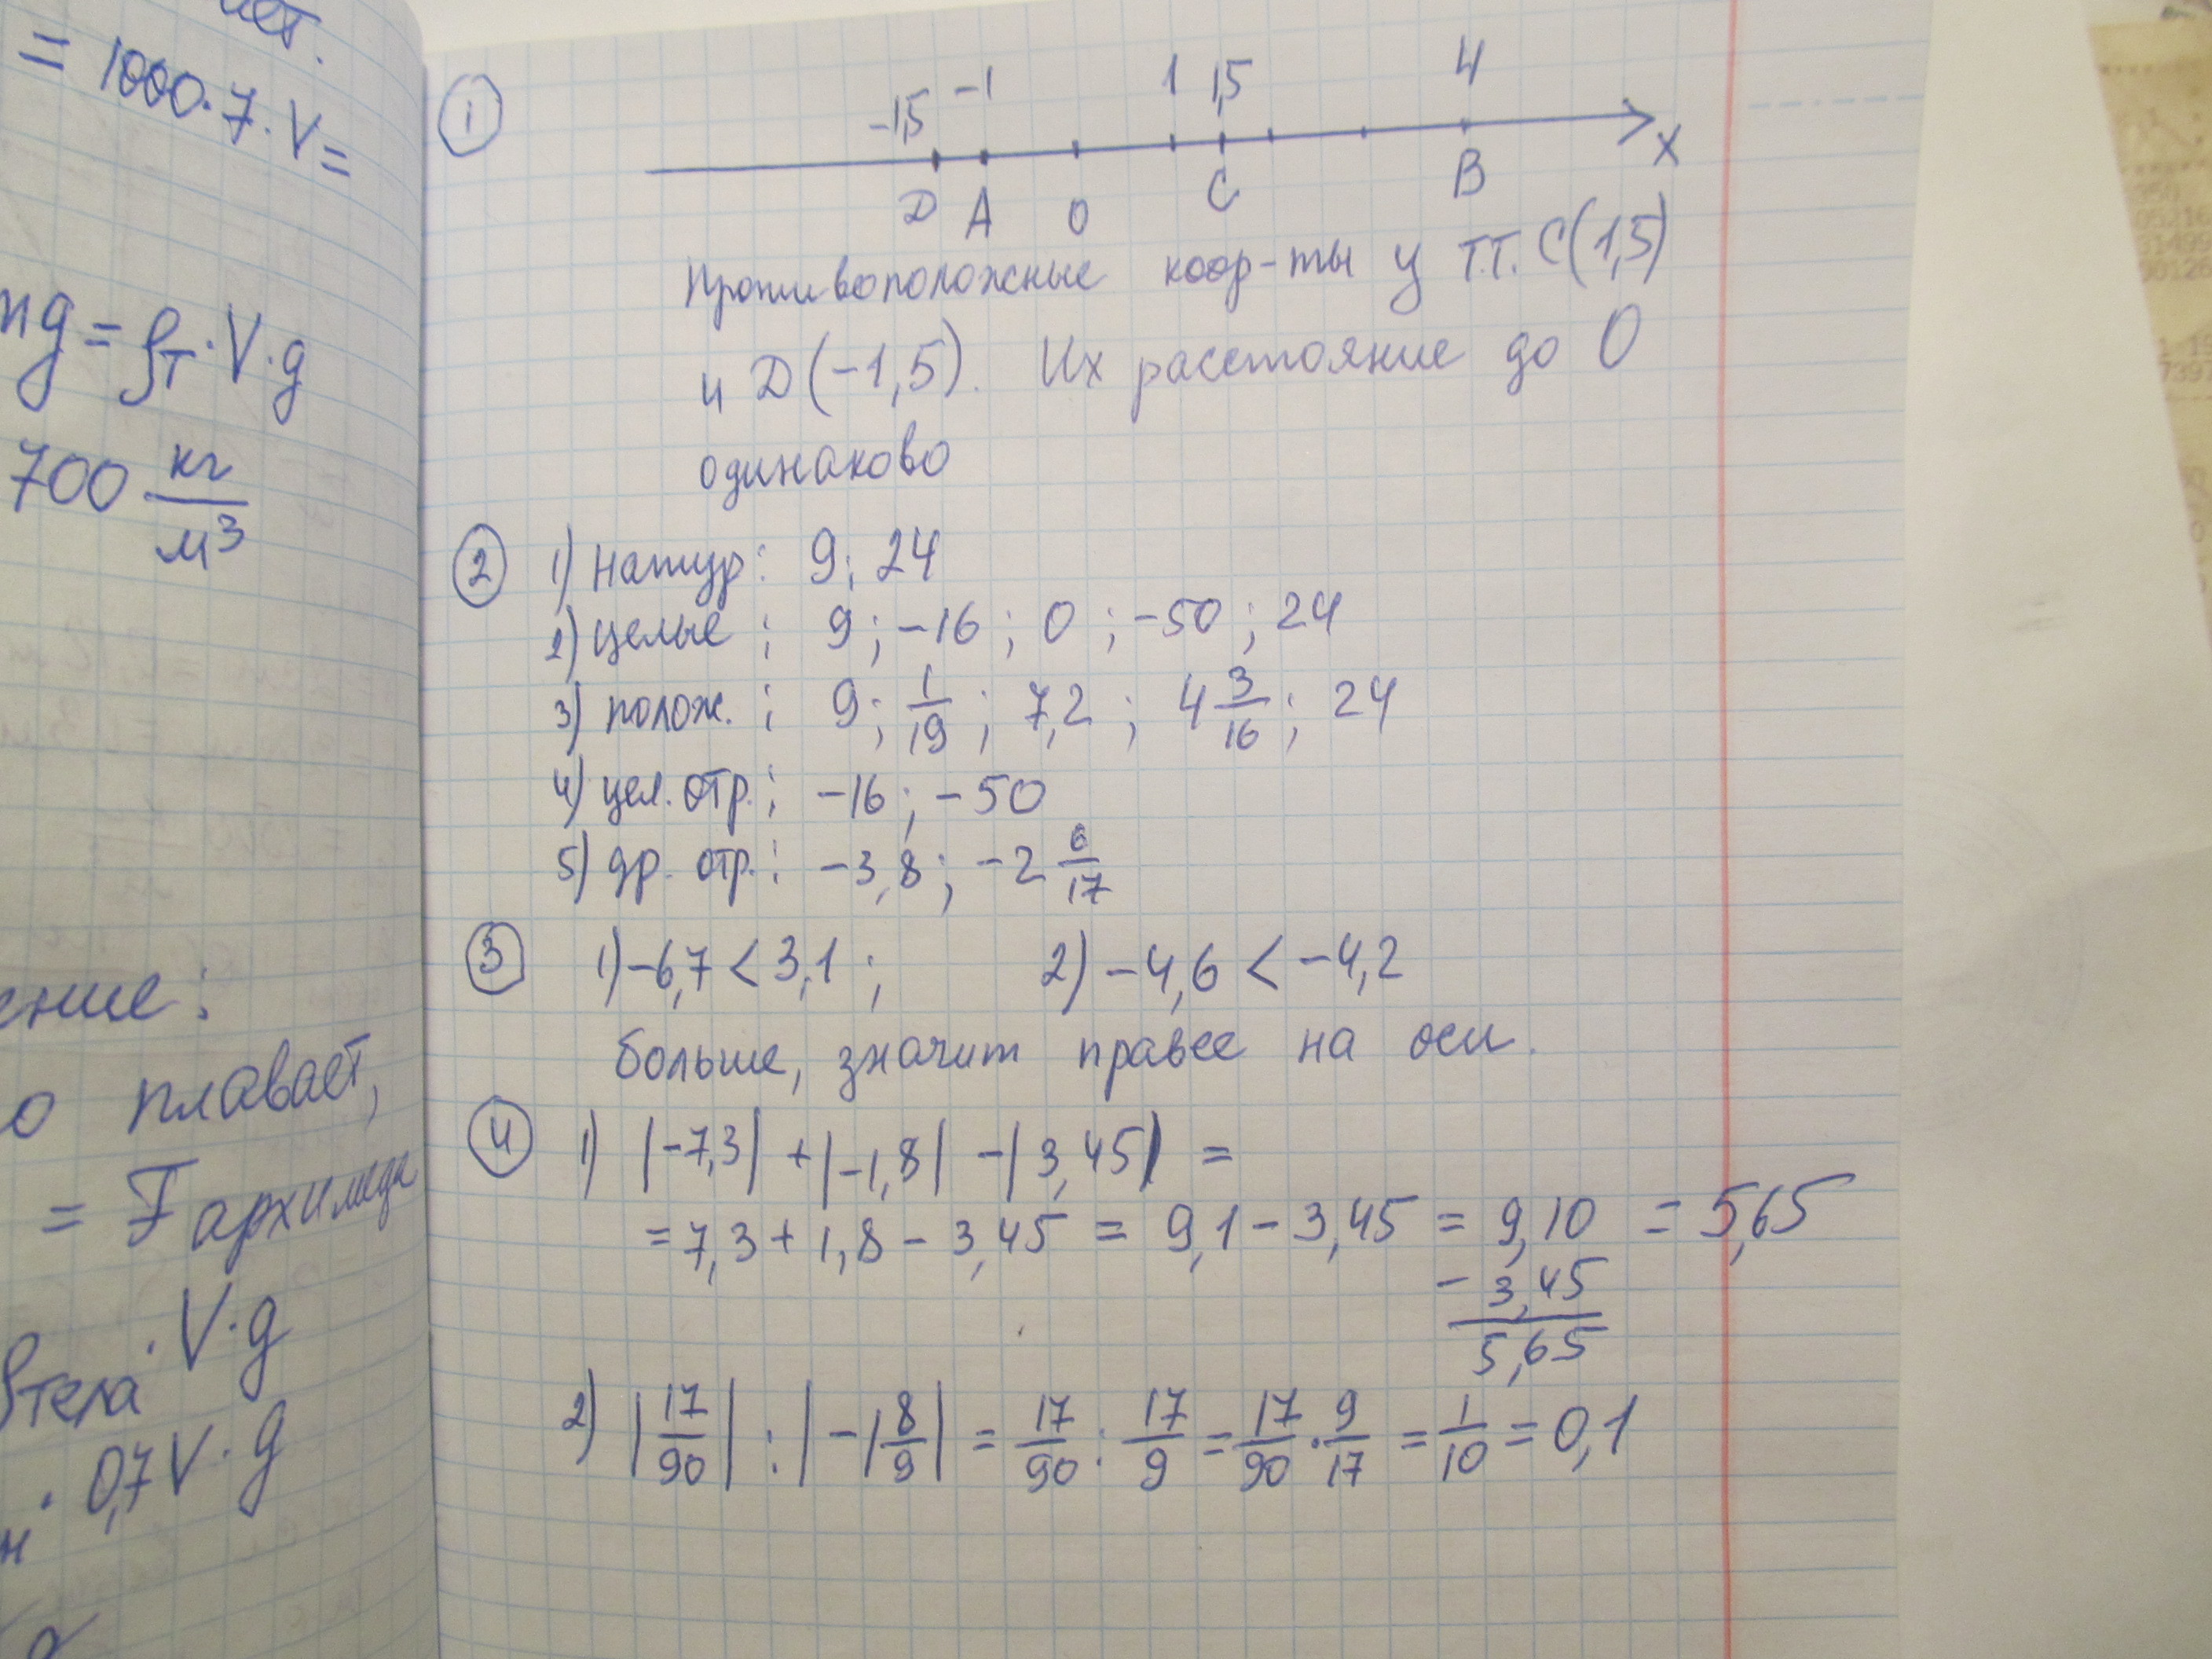 = 1000·7·V=
mg = ρт·V·g
700 кг/м³
ение:
о плавает,
= F архимеда
ρтела·V·g
· 0,7V·g
① -1,5 -1 1 1,5 4
D A 0 C B x
Противоположные коор-ты у т.т. C(1,5)
и D(-1,5). Их расстояние до 0
одинаково
② 1) натур: 9; 24
2) целые ; 9; -16; 0; -50; 24
3) полож. ; 9; 1/19; 7,2; 4 3/16; 24
4) цел. отр. ; -16; -50
5) др. отр. : -3,8; -2 6/17
③ 1) -6,7 < 3,1 ; 2) -4,6 < -4,2
больше, значит правее на оси.
④ 1) |-7,3| + |-1,8| - |3,45| =
= 7,3 + 1,8 - 3,45 = 9,1 - 3,45 = 9,10 = 5,65
- 3,45
5,65
2) |17/90| : |-1 8/9| = 17/90 : 17/9 = 17/90 · 9/17 = 1/10 = 0,1